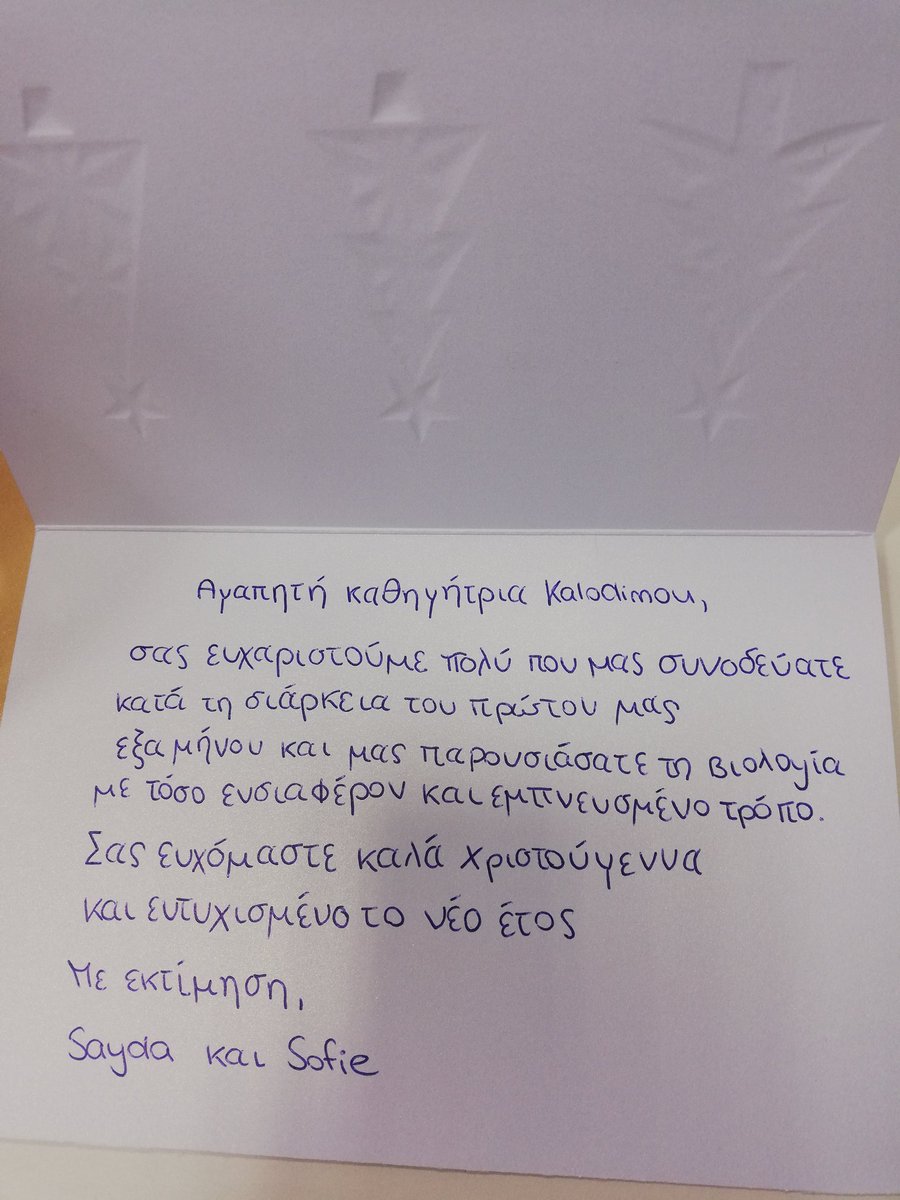 Αγαπητή καθηγήτρια Kalodimou,
σας ευχαριστούμε πολύ που μας συνοδεύατε
κατά τη σιάρκεια του πρώτου μας
εξαμήνου και μας παρουσιάσατε τη βιολογία
με τόσο ενσιαφέρον και εμπνευσμένο τρόπο.
Σας ευχόμαστε καλά χριστούγεννα
και εντυχισμένο το νέο έτος
Με εκτίμηση,
Sayda και Sofie